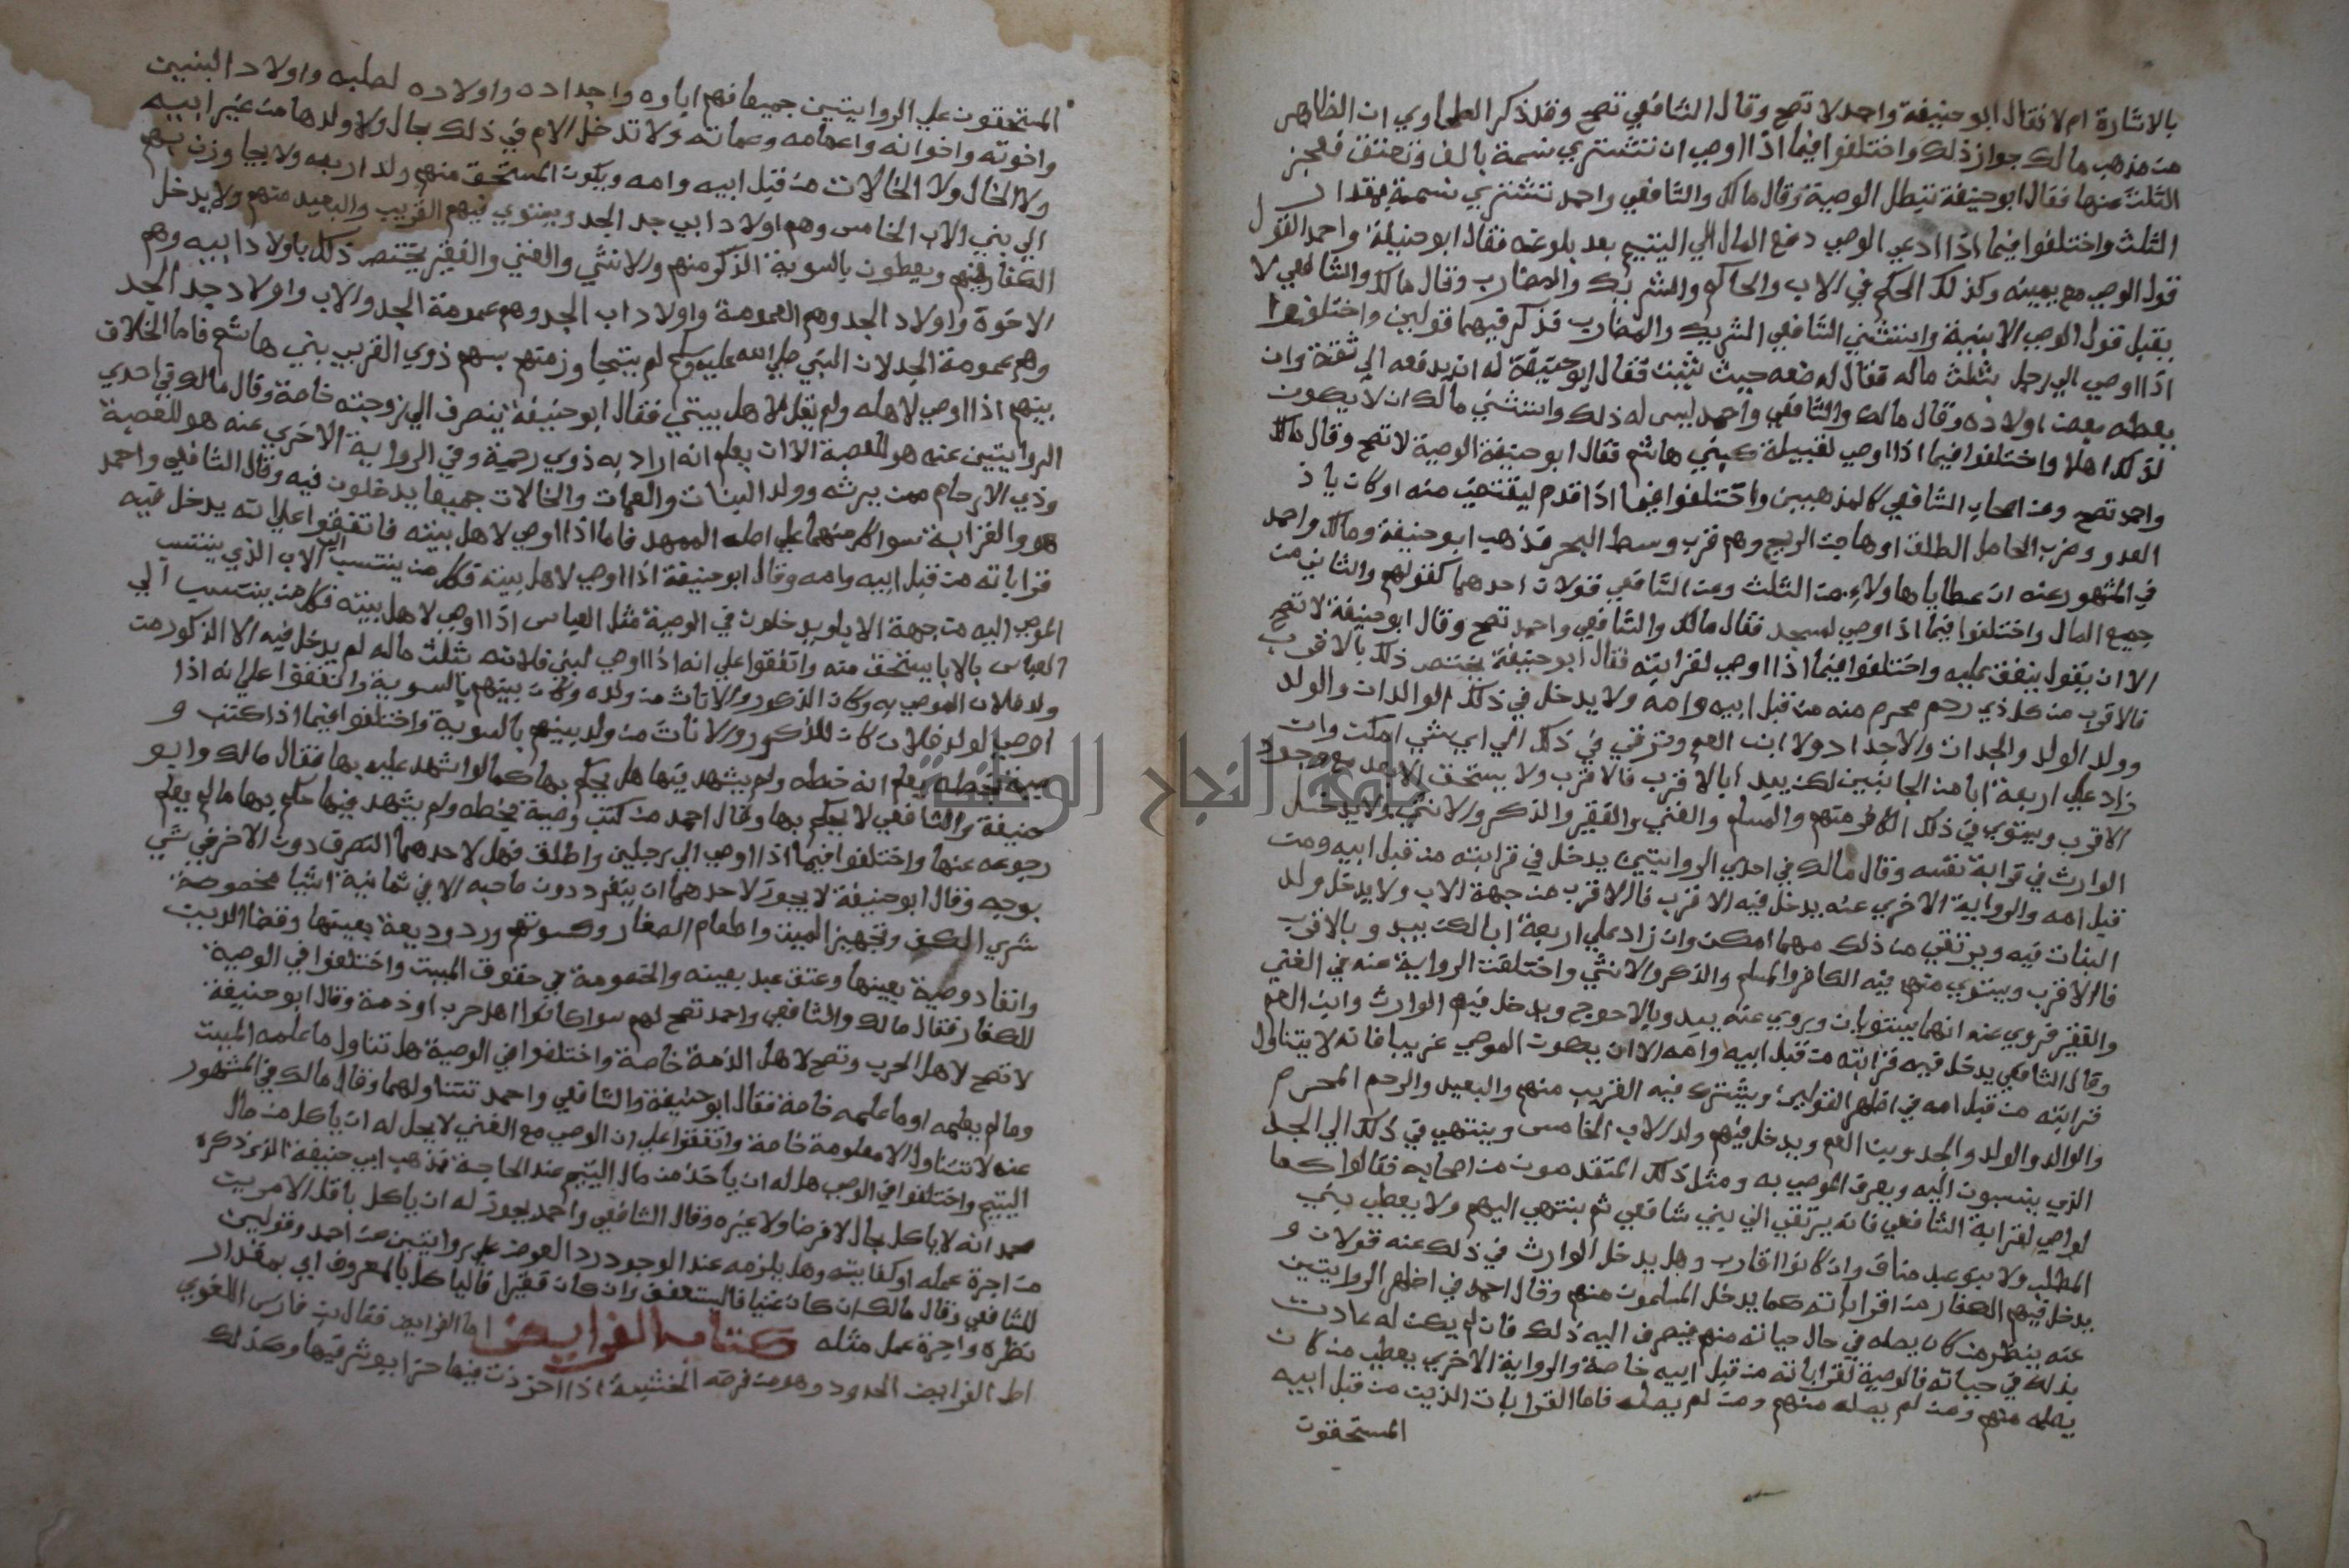 بالاشارة ام لا فقال ابو حنيفة واحمد لا تصح وقال الشافعي تصح وقد ذكر الطحاوي ان الظاهر
من مذهب مالك جواز ذلك واختلفوا فيما اذا اوصي ان تشتري نسمة بالف وتعتق فعجز
الثلث عنها فقال ابو حنيفة تبطل الوصية وقال مالك والشافعي واحمد تشتري نسمة بقدر
الثلث واختلفوا فيما اذا ادعي الوصي دفع المال الي اليتيم بعد بلوغه فقال ابو حنيفة واحمد القول
قول الوصي مع يمينه وكذلك الحكم في الاب والحاكم والشريك والمضارب وقال مالك والشافعي لا
يقبل قول الوصي الا ببينة واستثني الشافعي الشريك والمضارب فذكر فيهما قولين واختلفوا
اذا اوصي الي رجل بثلث ماله فقال له ضعه حيث شئت فقال ابو حنيفة له ان يدفعه الي وان
يعطه بعض اولاده وقال مالك والشافعي واحمد ليس له ذلك واستثني مالك ان لا يكون
لذلك اهلا واختلفوا فيما اذا اوصي لقبيلة كبني هاشم فقال ابو حنيفة الوصية لا تصح وقال مالك
واحمد تصح وعن اصحاب الشافعي كالمذهبين واختلفوا فيما اذا قدم ليقتص منه او كان باز
العدو وضرب الحامل الطلق او هاجت الريح وهم قرب وسط البحر فذهب ابو حنيفة ومالك واحمد
في المشهور عنه ان عطايا هاولاء من الثلث وعن الشافعي قولان احدهما كقولهم والثاني من
جميع المال واختلفوا فيما اذا اوصي لمسجد فقال مالك والشافعي واحمد تصح وقال ابو حنيفة لا تصح
الا ان يقول ينفق عليه واختلفوا فيما اذا اوصي لقرابته فقال ابو حنيفة يختص ذلك بالاقرب
فالاقرب من كل ذي رحم محرم منه من قبل ابيه وامه ولا يدخل في ذلك الوالدان والولد
وولد الولد والجدات والاجداد ولا ابن العم وترقي في ذلك الي اي شي امكن وان
زاد علي اربعة ابا من الجانبين لكن يبد ابالاقرب فالاقرب ولا يستحق الابعد مع وجود
الاقرب ويستوي في ذلك الكافر منهم والمسلم والغني والفقير والذكر والانثي ولا يدخل
الوارث في قرابة نفسه وقال مالك في احدي الروايتين يدخل في قرابته من قبل ابيه ومن
قبل امه والرواية الاخري عنه يدخل فيه الاقرب فالاقرب من جهة الاب ولا يدخل ولد
البنات فيه ويرتقي من ذلك مهما امكن وان زاد علي اربعة ابا لكن يبد و بالاقرب
فالاقرب ويستوي منهم فيه الكافر والمسلم والذكر والانثي واختلفت الرواية عنه في الغني
والفقير فروي عنه انهما يستويان وروي عنه يبد وبالاحوج ويدخل فيهم الوارث وابن العم
وقال الشافعي يدخل فيه قرابته من قبل ابيه وامه الا ان يكون الموصي عربيا فانه لا يتناول
قرابته من قبل امه في اظهر القولين ويشترك فيه القريب منهم والبعيد والرحم المحرم
والوالد والولد والجد وبن العم ويدخل فيهم ولد الاب الخامس وينتهي في ذلك الي الجد
الذي ينسبون اليه ويعرف الموصي به ومثل ذلك المتقدمون من اصحابه فقالوا كما
لو اوصي لقرابة الشافعي فانه يرتقي الي بني شافعي ثم ينتهي اليهم ولا يعطي بني
المطلب ولا بنو عبد مناف وان كانوا اقارب وهل يدخل الوارث في ذلك عنه قولان و
يدخل فيهم الكفار من اقرباته كما يدخل المسلمون منهم وقال احمد في اظهر الروايتين
عنه ينظر من كان يصله في حال حياته منهم فيصرف اليه ذلك فان لم يكن له عادت
بذلك في حياته فالوصية لقراباته من قبل ابيه خاصة والرواية الاخري يعطي من كان
يصله منهم ومن لم يصله منهم ومن لم يصله فاما القرابات الذين من قبل ابيه
المستحقون
المستحقون علي الروايتين جميعا فهم اباوه واجداده واولاده لصلبه واولاد البنين
واخوته واخواته واعمامه وعماته ولا تدخل الام في ذلك بحال ولا ولدها من غير ابيه
ولا الخال ولا الخالات من قبل ابيه وامه ويكون المستحق منهم ولد اربعه ولا يجاوزن بهم
الي بني الاب الخامس وهم اولاد ابي جد الجد ويستوي فيهم القريب والبعيد منهم ولا يدخل
الكفار فيهم ويعطون بالسوية الذكر منهم والانثي والغني والفقير يختص ذلك باولاد ابيه وهم
الاخوة واولاد الجد وهم العمومة واولاد اب الجد وهم عمومة الجد والاب واولاد جد الجد
وهم عمومة الجد لان النبي صلي الله عليه وسلم لم يتجاوز منهم بسهم ذوي القربي بني هاشم فاما الخلاف
بينهم اذا اوصي لاهله ولم يقل لاهل بيتي فقال ابو حنيفة ينصرف الي زوجته خاصة وقال مالك في احدي
الروايتين عنه هو للعصبة الا ان يعلم انه اراد به ذوي رحمية وفي الرواية الاخري عنه هو للعصبة
وذي الارحام ممن يرثه وولد البنات والعمات والخالات جميعا يدخلون فيه وقال الشافعي واحمد
هو والقرابة سوا كل منهما علي اصله الممهد فاما اذا اوصي لاهل بيته فاتفقوا علي انه يدخل فيه
قراباته من قبل ابيه وامه وقال ابو حنيفة اذا اوصي لاهل بيته فكل من ينتسب الي الاب الذي ينتسب
الموصي اليه من جهة الابا ويدخلون في الوصية مثل العباس اذا اوصي لاهل بيته فكل من ينتسب الي
العباس بالابا يستحق منه واتفقوا علي انه اذا اوصي لبني فلانه بثلث ماله لم يدخل فيه الا الذكور من
ولد فلان الموصي به وكان الذكور والاناث من ولده وكان بينهم بالسوية واتفقوا علي انه اذا
اوصي لولد فلان كان للذكور والاناث من ولد بينهم بالسوية واختلفوا فيما اذا كتب و
صية بخطه يعلم انه خطه ولم يشهد فيها هل يحكم بها كما لو اشهد عليه بها فقال مالك وابو
حنيفة والشافعي لا يحكم بها وقال احمد من كتب وصية بخطه ولم يشهد فيها حكم بها ما لم يعلم
رجوعه عنها واختلفوا فيما اذا اوصي الي رجلين واطلق فهل لاحدهما التصرف دون الاخر في شي
بوجه وقال ابو حنيفة لا يجوز لاحدهما ان ينفرد دون صاحبه الا في ثمانية اشيا مخصوصة
شري الكفن وتجهيز الميت واطعام الصغار وكسوتهم ورد وديعة بعينها وقضا الدين
وانفاد وصية بعينها وعتق عبد بعينه والخصومة في حقوق الميت واختلفوا في الوصية
للكفار فقال مالك والشافعي واحمد تصح لهم سوا كانوا اهل حرب او ذمة وقال ابو حنيفة
لا تصح لاهل الحرب وتصح لاهل الذمة خاصة واختلفوا في الوصية هل تتناول ما علمه الميت
وما لم يعلمه او ما علمه خاصة فقال ابو حنيفة والشافعي واحمد تتناولهما وقال مالك في المشهور
عنه لا تتناول الا معلومة خاصة واتفقوا علي ان الوصي مع الغني لا يحل له ان ياكل من مال
اليتيم واختلفوا في الوصي هل له ان ياخذ من مال اليتيم عند الحاجة فذهب ابي حنيفة الذي ذكره
محمد انه لا ياكل بحال لا قرضا ولا غيره وقال الشافعي واحمد يجوز له ان ياكل باقل الامرين
من اجرة عمله او كفايته وهل يلزمه عند الوجود رد العوض علي روايتين عن احمد وقولين
للشافعي وقال مالك ان كان غنيا فاليستعفف وان كان فقيرا فاليا كل بالمعروف اي بمقدار
نظره واجرة عمل مثله كتاب الفرايض اما الفرايض فقال بن فارس اللغوي
اصل الفرايض الحدود وهو من فرضه الخشبة اذا حززت فيها حزا يوثر فيها وكذلك